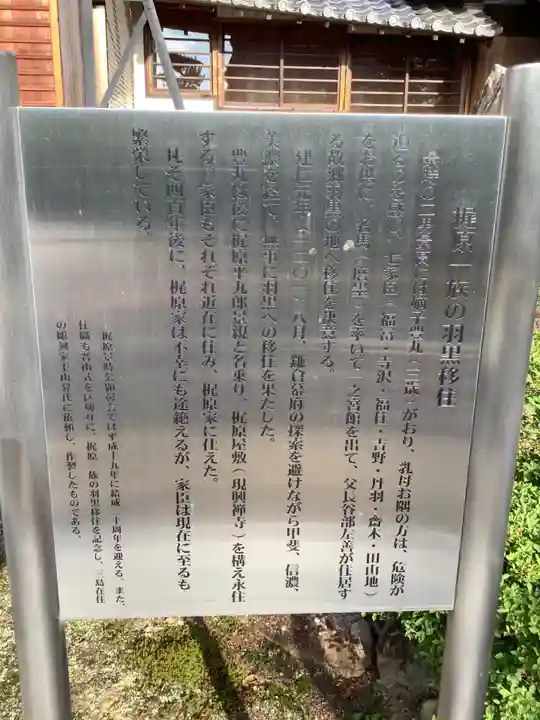 梶原一族の羽黒移住
景時の二男景高には嫡子豊丸(三歳)がおり、乳母お隅の方は、危険が
迫るのを感じ、七家臣(福富・寺沢・福住・吉野・丹羽・齋木・旧山地)
をお供に、名馬(磨墨)を率いて一之宮館を出て、父長谷部左善が住居す
る故郷羽黒の地へ移住を決意する。
建仁元年(一二〇一)八月、鎌倉幕府の探索を避けながら甲斐、信濃、
美濃を経て、無事に羽黒への移住を果たした。
豊丸は後に梶原平九郎景親と名乗り、梶原屋敷(現興禅寺)を構え永住
する。家臣もそれぞれ近在に住み、梶原家に仕えた。
凡そ四百年後に、梶原家は不幸にも途絶えるが、家臣は現在に至るも
繁栄している。
梶原景時公顕彰会では平成十九年に結成二十周年を迎える。また、
住職も晋山式を区切りに、梶原一族の羽黒移住を記念し、三島在住
の彫刻家 に依頼し、作製したものである。